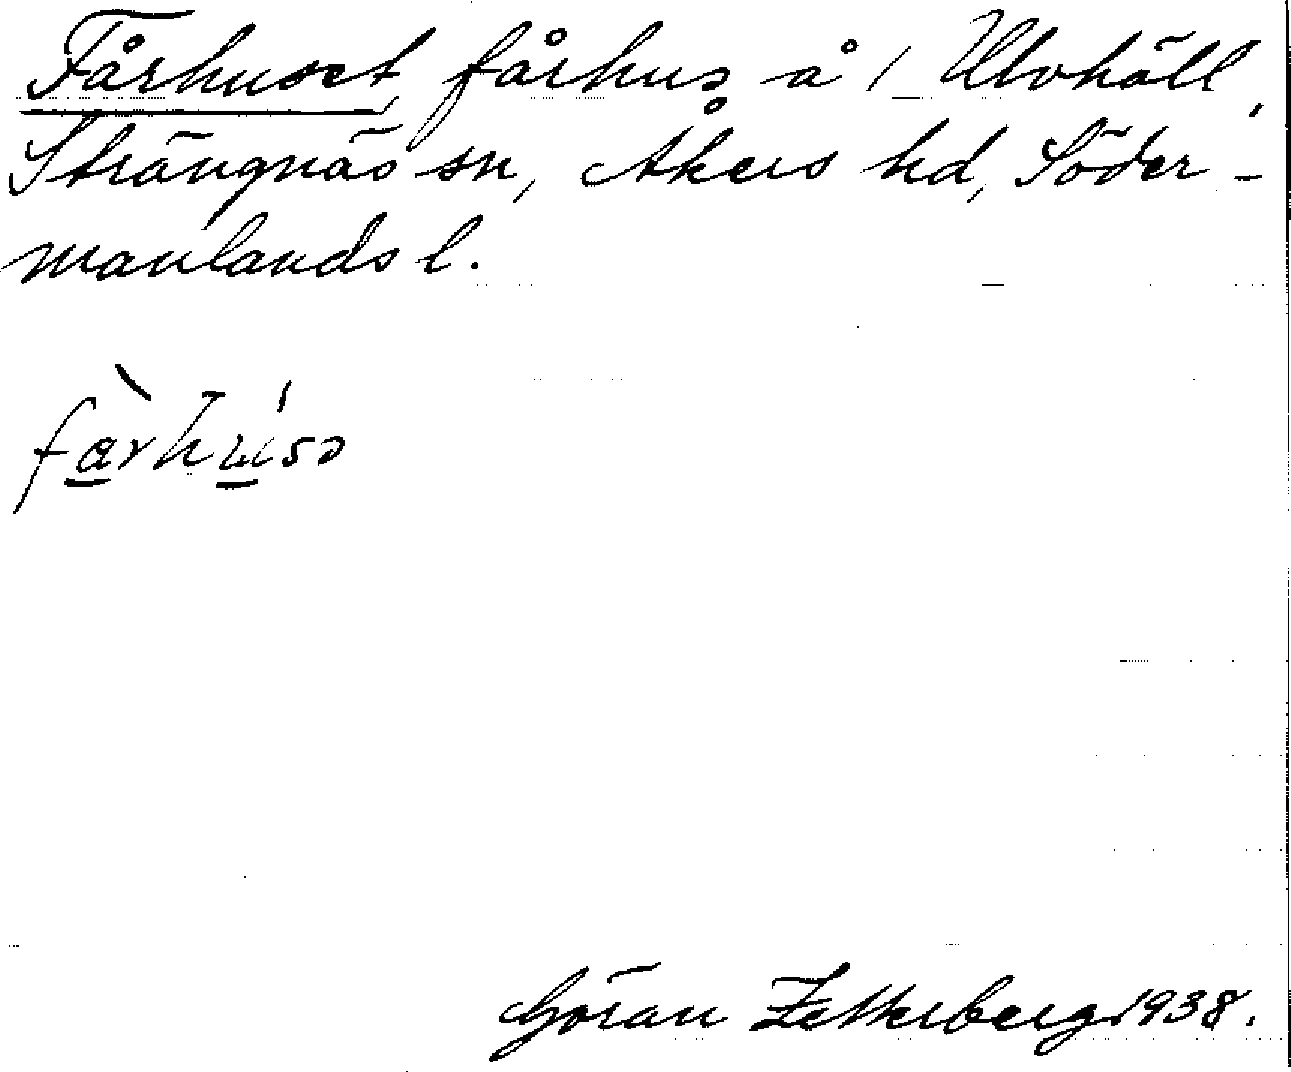 Fårhuset, fårhus å 1 Ulvhäll,
Strängnäs sn, Åkers hd, Söder-
manlands l.
Göran Zetterberg 1938.